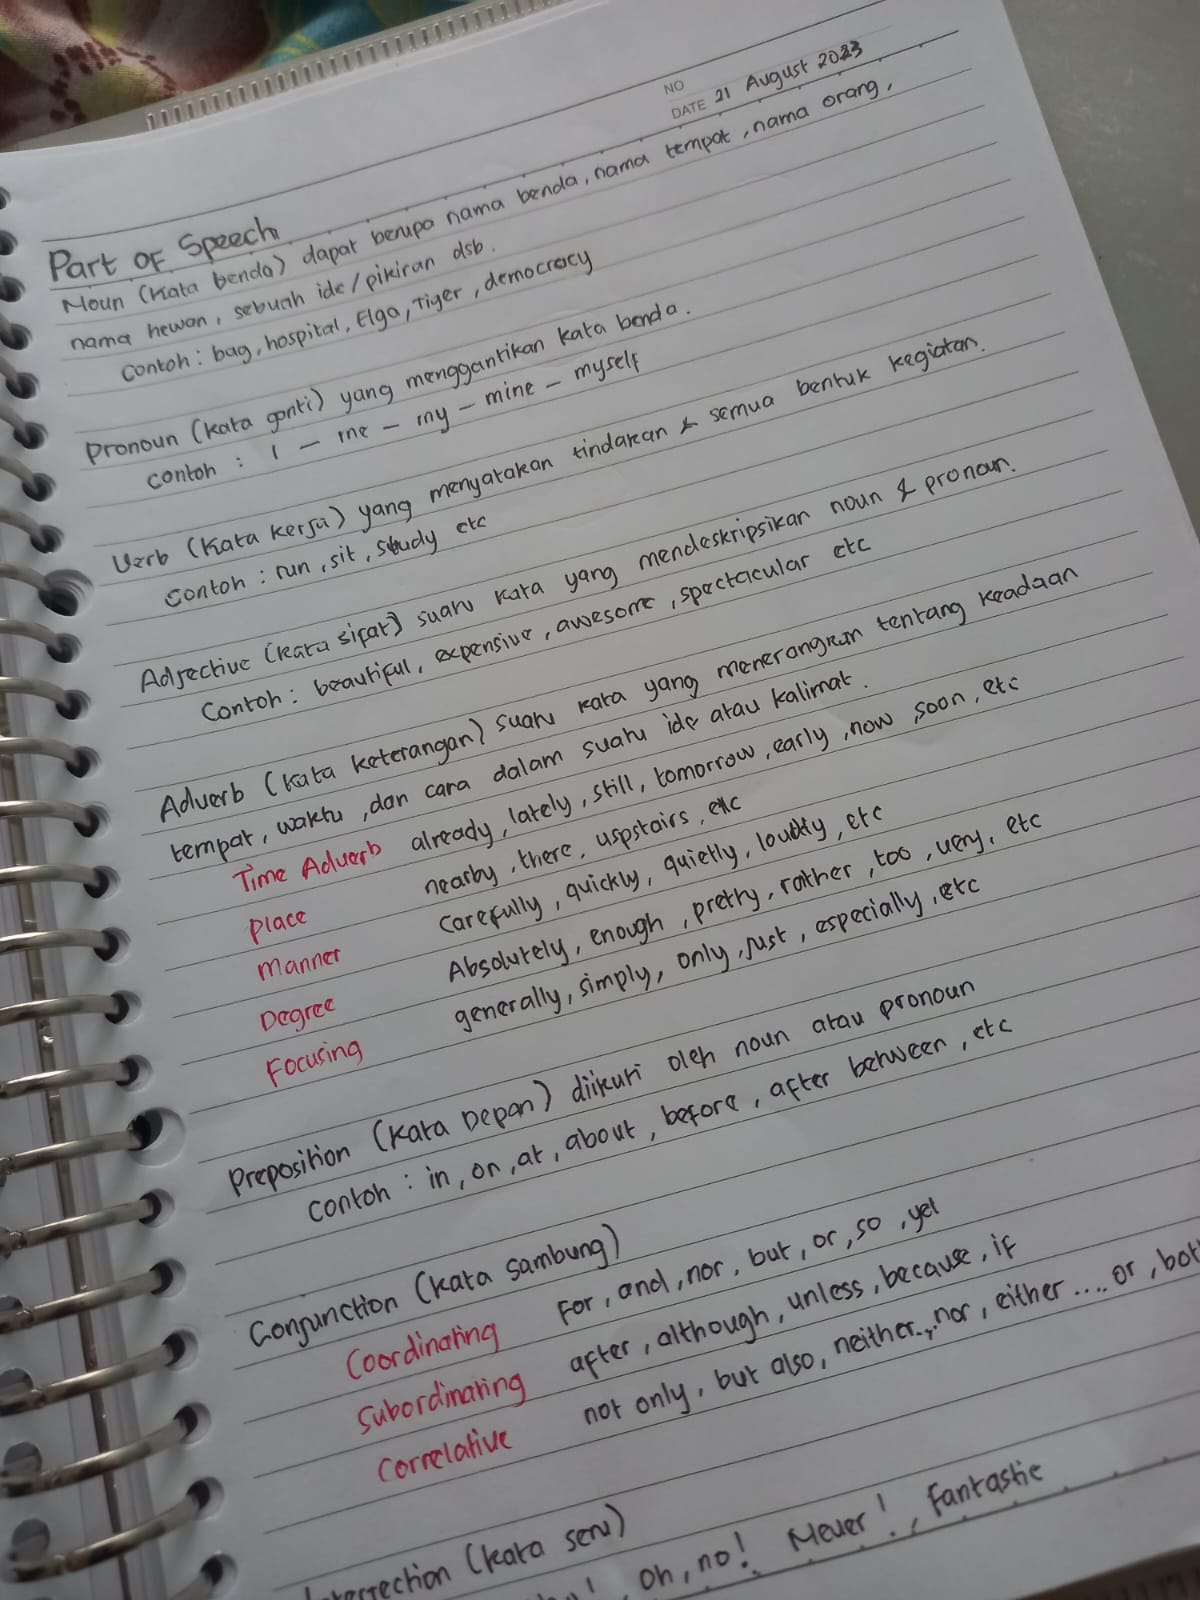 NO
DATE 21 August 2023
Part OF Speech
Noun (Kata benda) dapat berupa nama benda, nama tempat, nama orang,
nama hewan, sebuah ide/pikiran dsb.
Contoh: bag, hospital, Elga, Tiger, democracy
Pronoun (kata ganti) yang menggantikan kata benda.
contoh : I - me - my - mine - myself
Verb (Kata kerja) yang menyatakan tindakan & semua bentuk kegiatan.
contoh : run, sit, study etc
Adjective (kata sifat) suatu kata yang mendeskripsikan noun & pronoun.
Contoh: beautiful, expensive, awesome, spectacular etc
Adverb (kata keterangan) suatu kata yang menerangkan tentang keadaan
tempat, waktu, dan cara dalam suatu ide atau kalimat.
Time Adverb already, lately, still, tomorrow, early, now, soon, etc
place nearby, there, uspstairs, etc
manner carefully, quickly, quietly, loudly, etc
Degree Absolutely, enough, pretty, rather, too, very, etc
Focusing generally, simply, only, just, especially, etc
Preposition (Kata Depan) diikuti oleh noun atau pronoun
contoh : in, on, at, about, before, after between, etc
Conjunction (kata sambung)
Coordinating For, and, nor, but, or, so, yet
Subordinating after, although, unless, because, if
Correlative not only, but also, neither.., nor, either .... or,
(kata seru)
oh, no! Never!, Fantastic